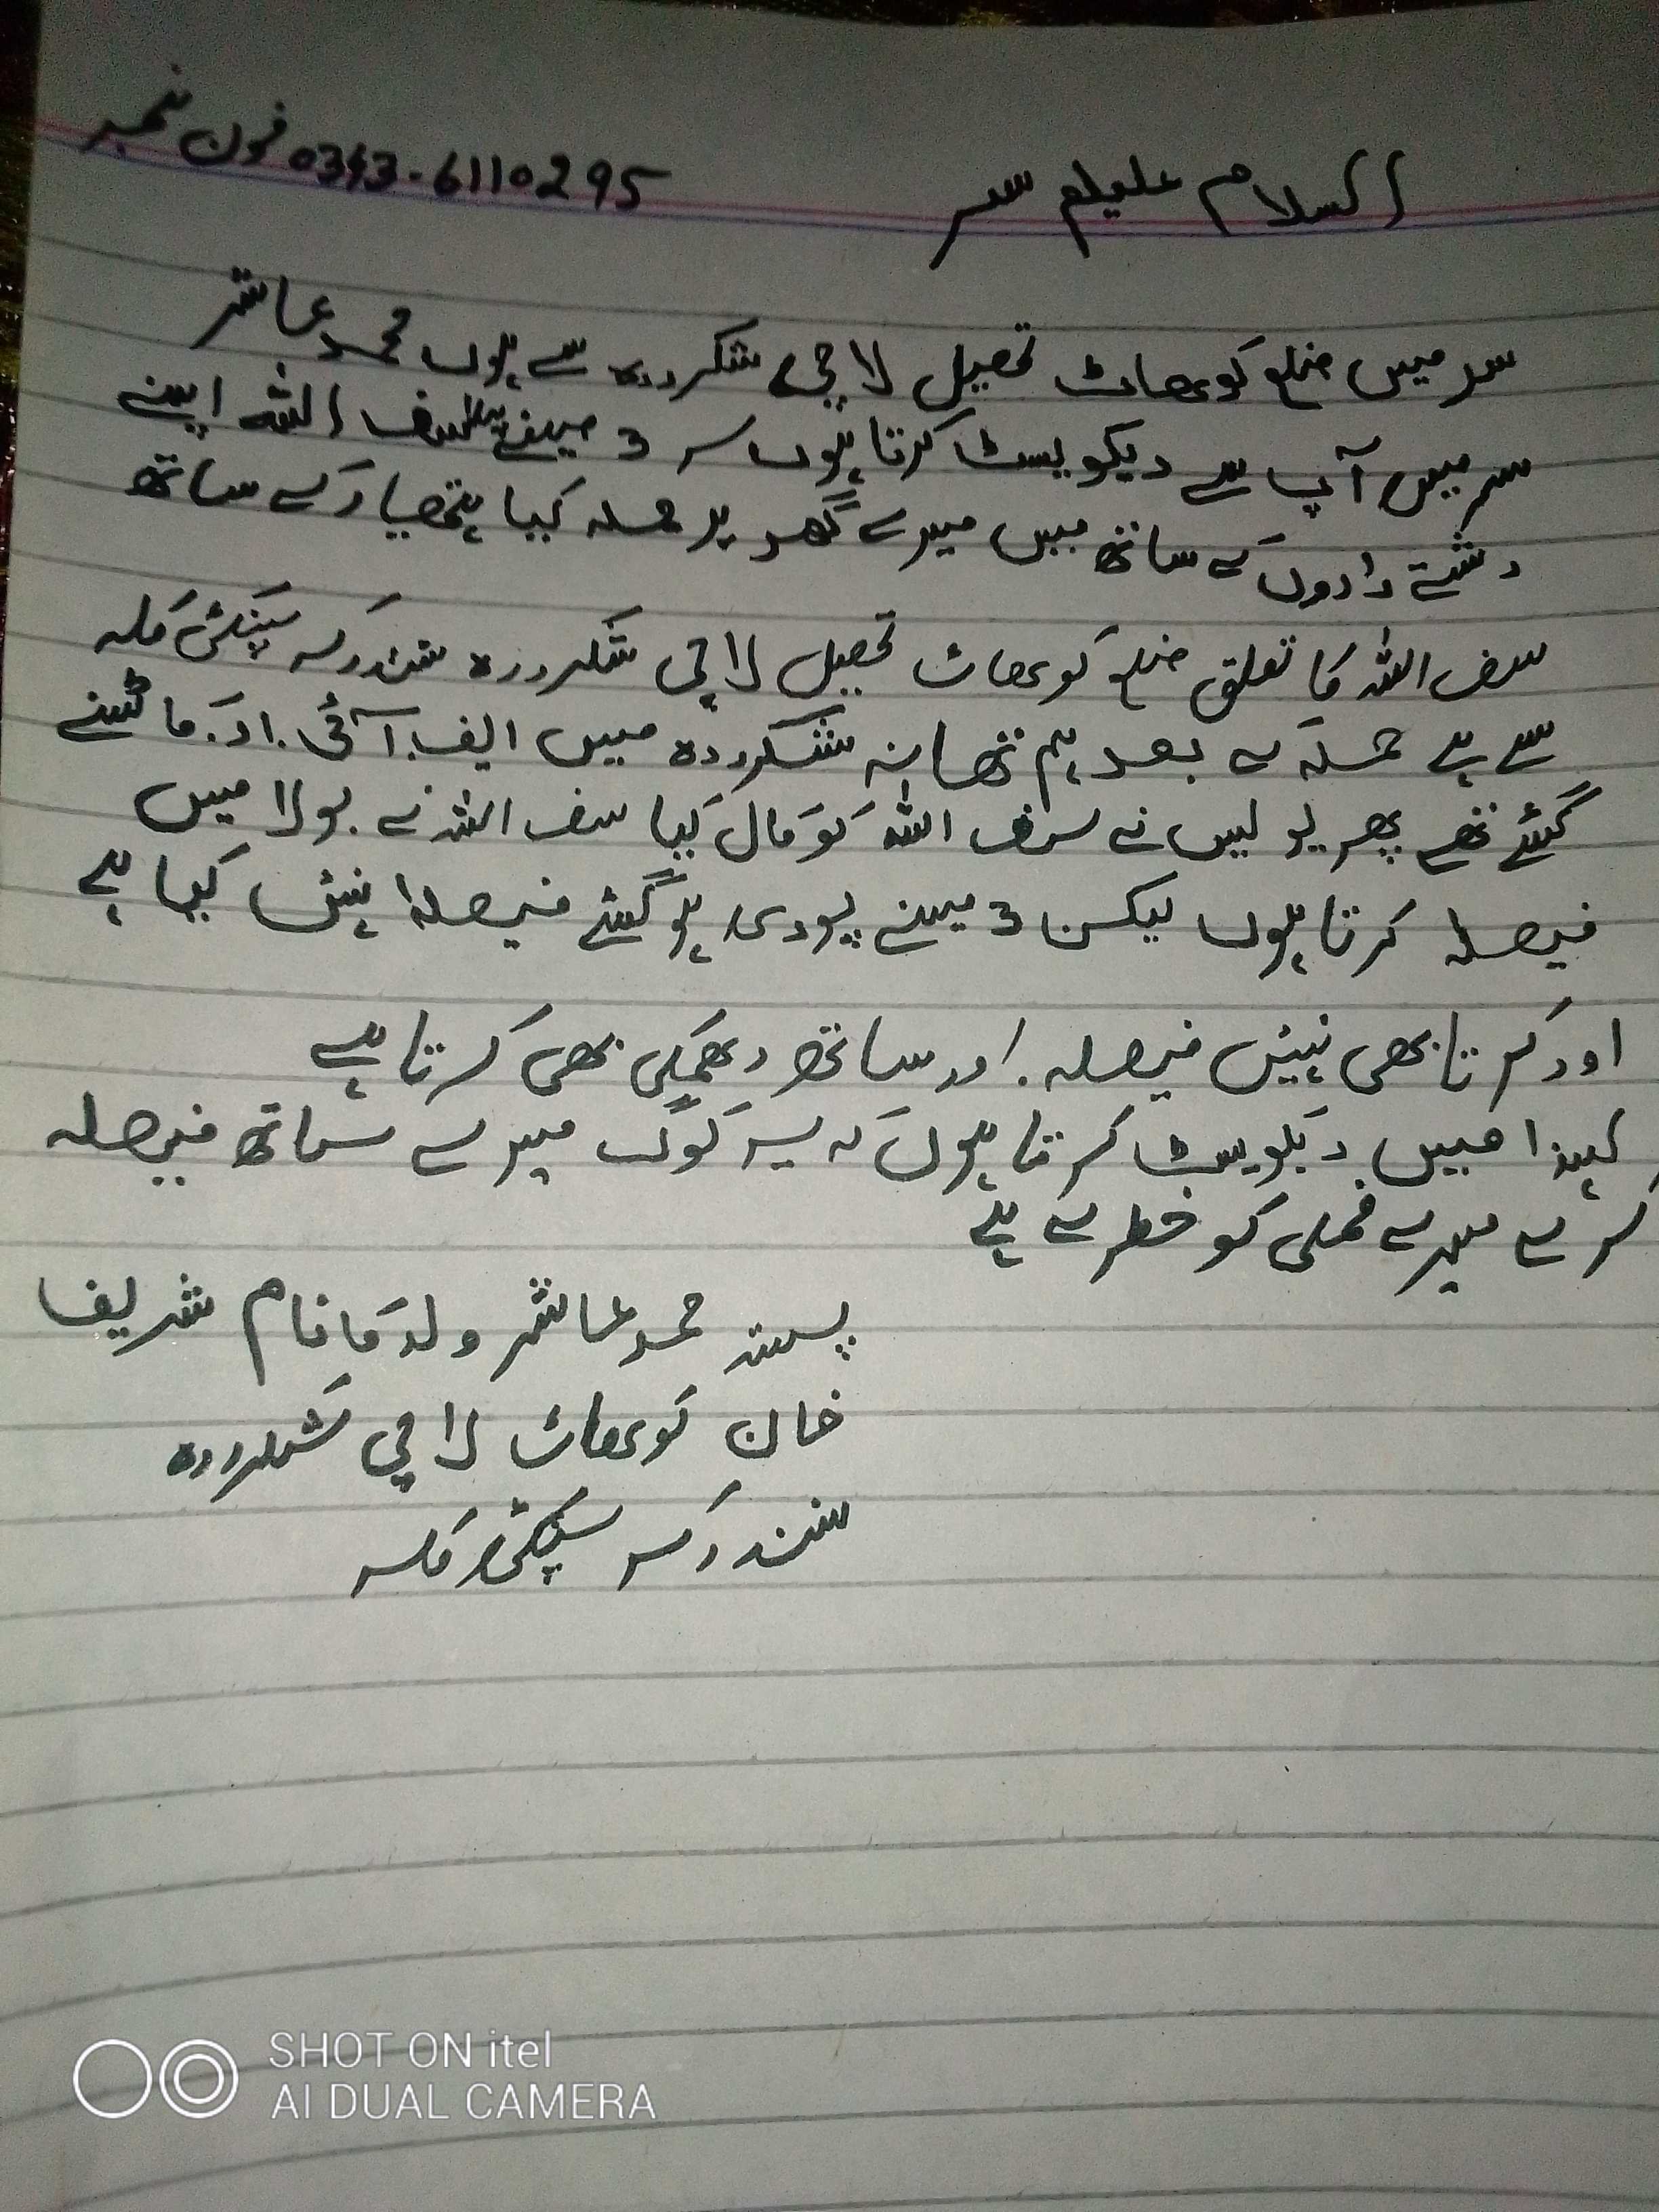 السلام علیلم سر
0343-6110295 فون نمبر
سر میں ضلع کوھاٹ تحصیل لاچی شکردرہ سے ہوں محمد عاشر
سر میں آپ سے ریکویسٹ کرتا ہوں سر 3 مہینے پہلے سف اللہ اپنے
رشتے داروں کے ساتھ میں میرے گھر پر حملہ کیا ہتھیار کے ساتھ
سف اللہ کا تعلق ضلع کوھاٹ تحصیل لاچی شکردرہ
سے ہے حملہ کے بعد ہم تھانہ شکردرہ میں ایف.آئی.ار.کاٹینے
گئے تھے پھر پولیس نے سف اللہ کو کال کیا سف اللہ نے بولا میں
فیصلہ کرتا ہوں لیکن 3 مہینے پوری ہو گئے فیصلہ نہیں کیا ہے
اور کرتا بھی نہیں فیصلہ. اور ساتھ دھمکی بھی کرتا ہے
لہذا میں ریکویسٹ کرتا ہوں کہ یہ لوگ میرے ساتھ فیصلہ
کرے میرے فملی کو خطرے ہے
پستہ محمد عاشر ولد کا نام شریف
خان کوھاٹ لاچی شکردرہ